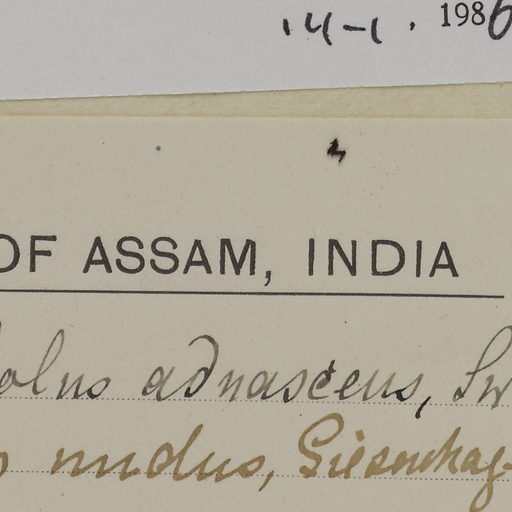 14-1. 1986
OF ASSAM, INDIA
olus adnascens, Sw
nudus, Giesenhag.